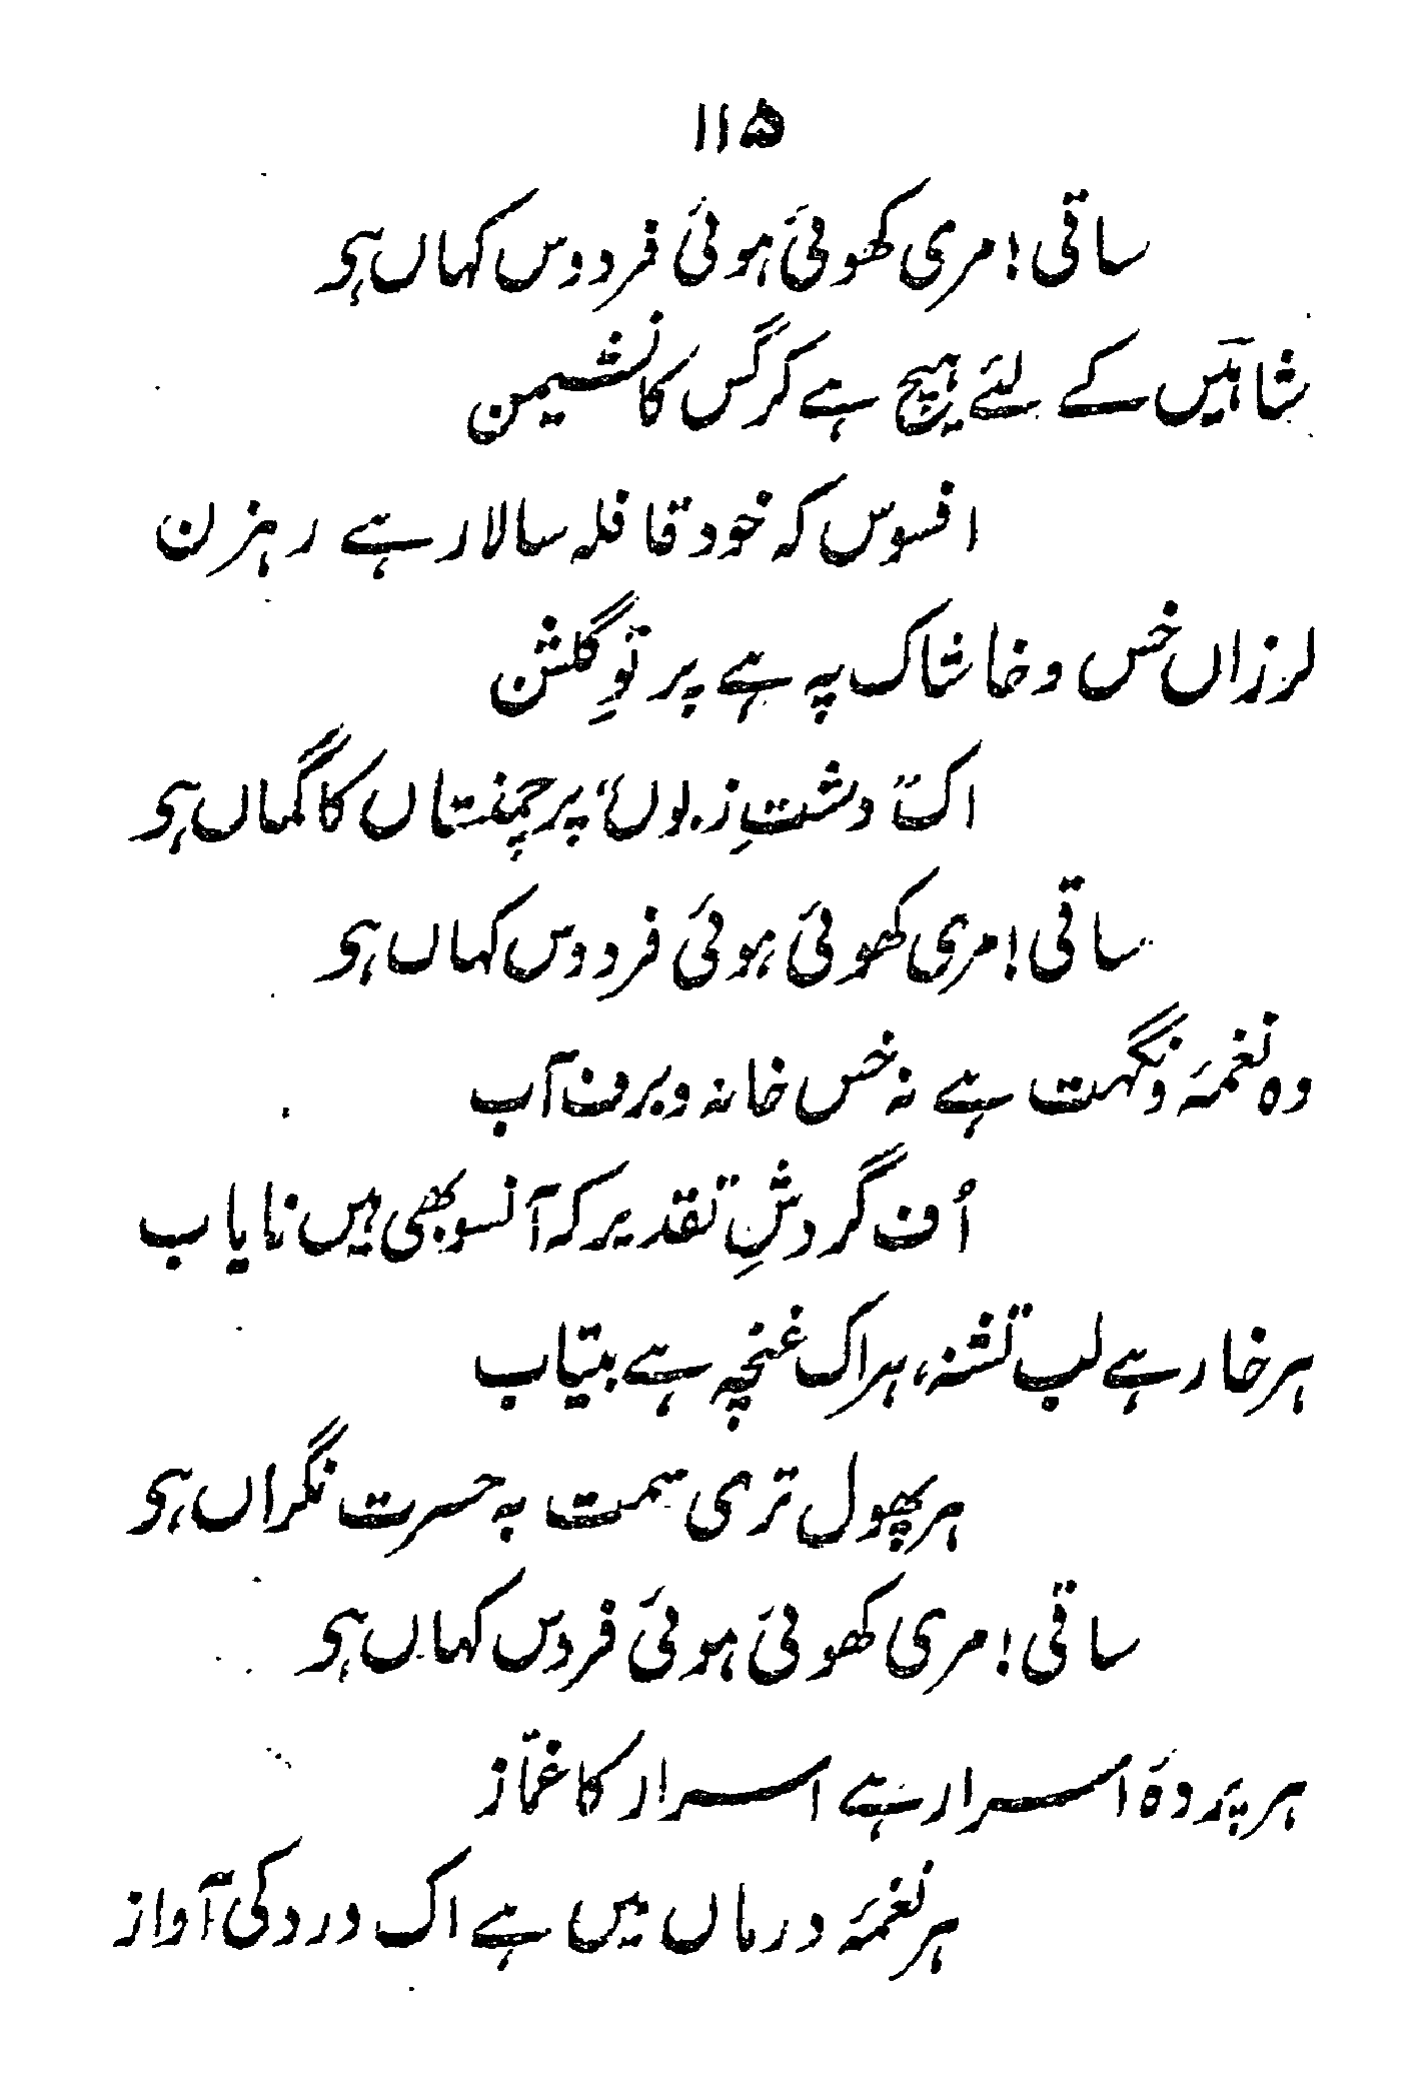 ۱۱۵
ساقی! مری کھوئی ہوئی فردوس کہاں ہی
شاہیں کے لئے ہیچ ہے کرگس کا نشیمن
افسوس کہ خود قافلہ سالار ہے رہزن
لرزاں خس و خاشاک پہ ہے پرتوِ گلشن
اک "دشتِ زبوں" پر چمنستاں کا گماں ہی
ساقی! مری کھوئی ہوئی فردوس کہاں ہی
وہ نغمۂ و نگہت ہے نہ خس خانہ و برف آب
اُف گردشِ تقدیر کہ آنسو بھی ہیں نایاب
ہر خار ہے لب تشنہ، ہر اک غنچہ ہے بیتاب
ہر پھول تری سمت بہ حسرت نگراں ہی
ساقی! مری کھوئی ہوئی فردس کہاں ہی
ہر پردۂ اسرار ہے اسرار کا غمّاز
ہر نغمۂ درماں میں ہے اک درد کی آواز